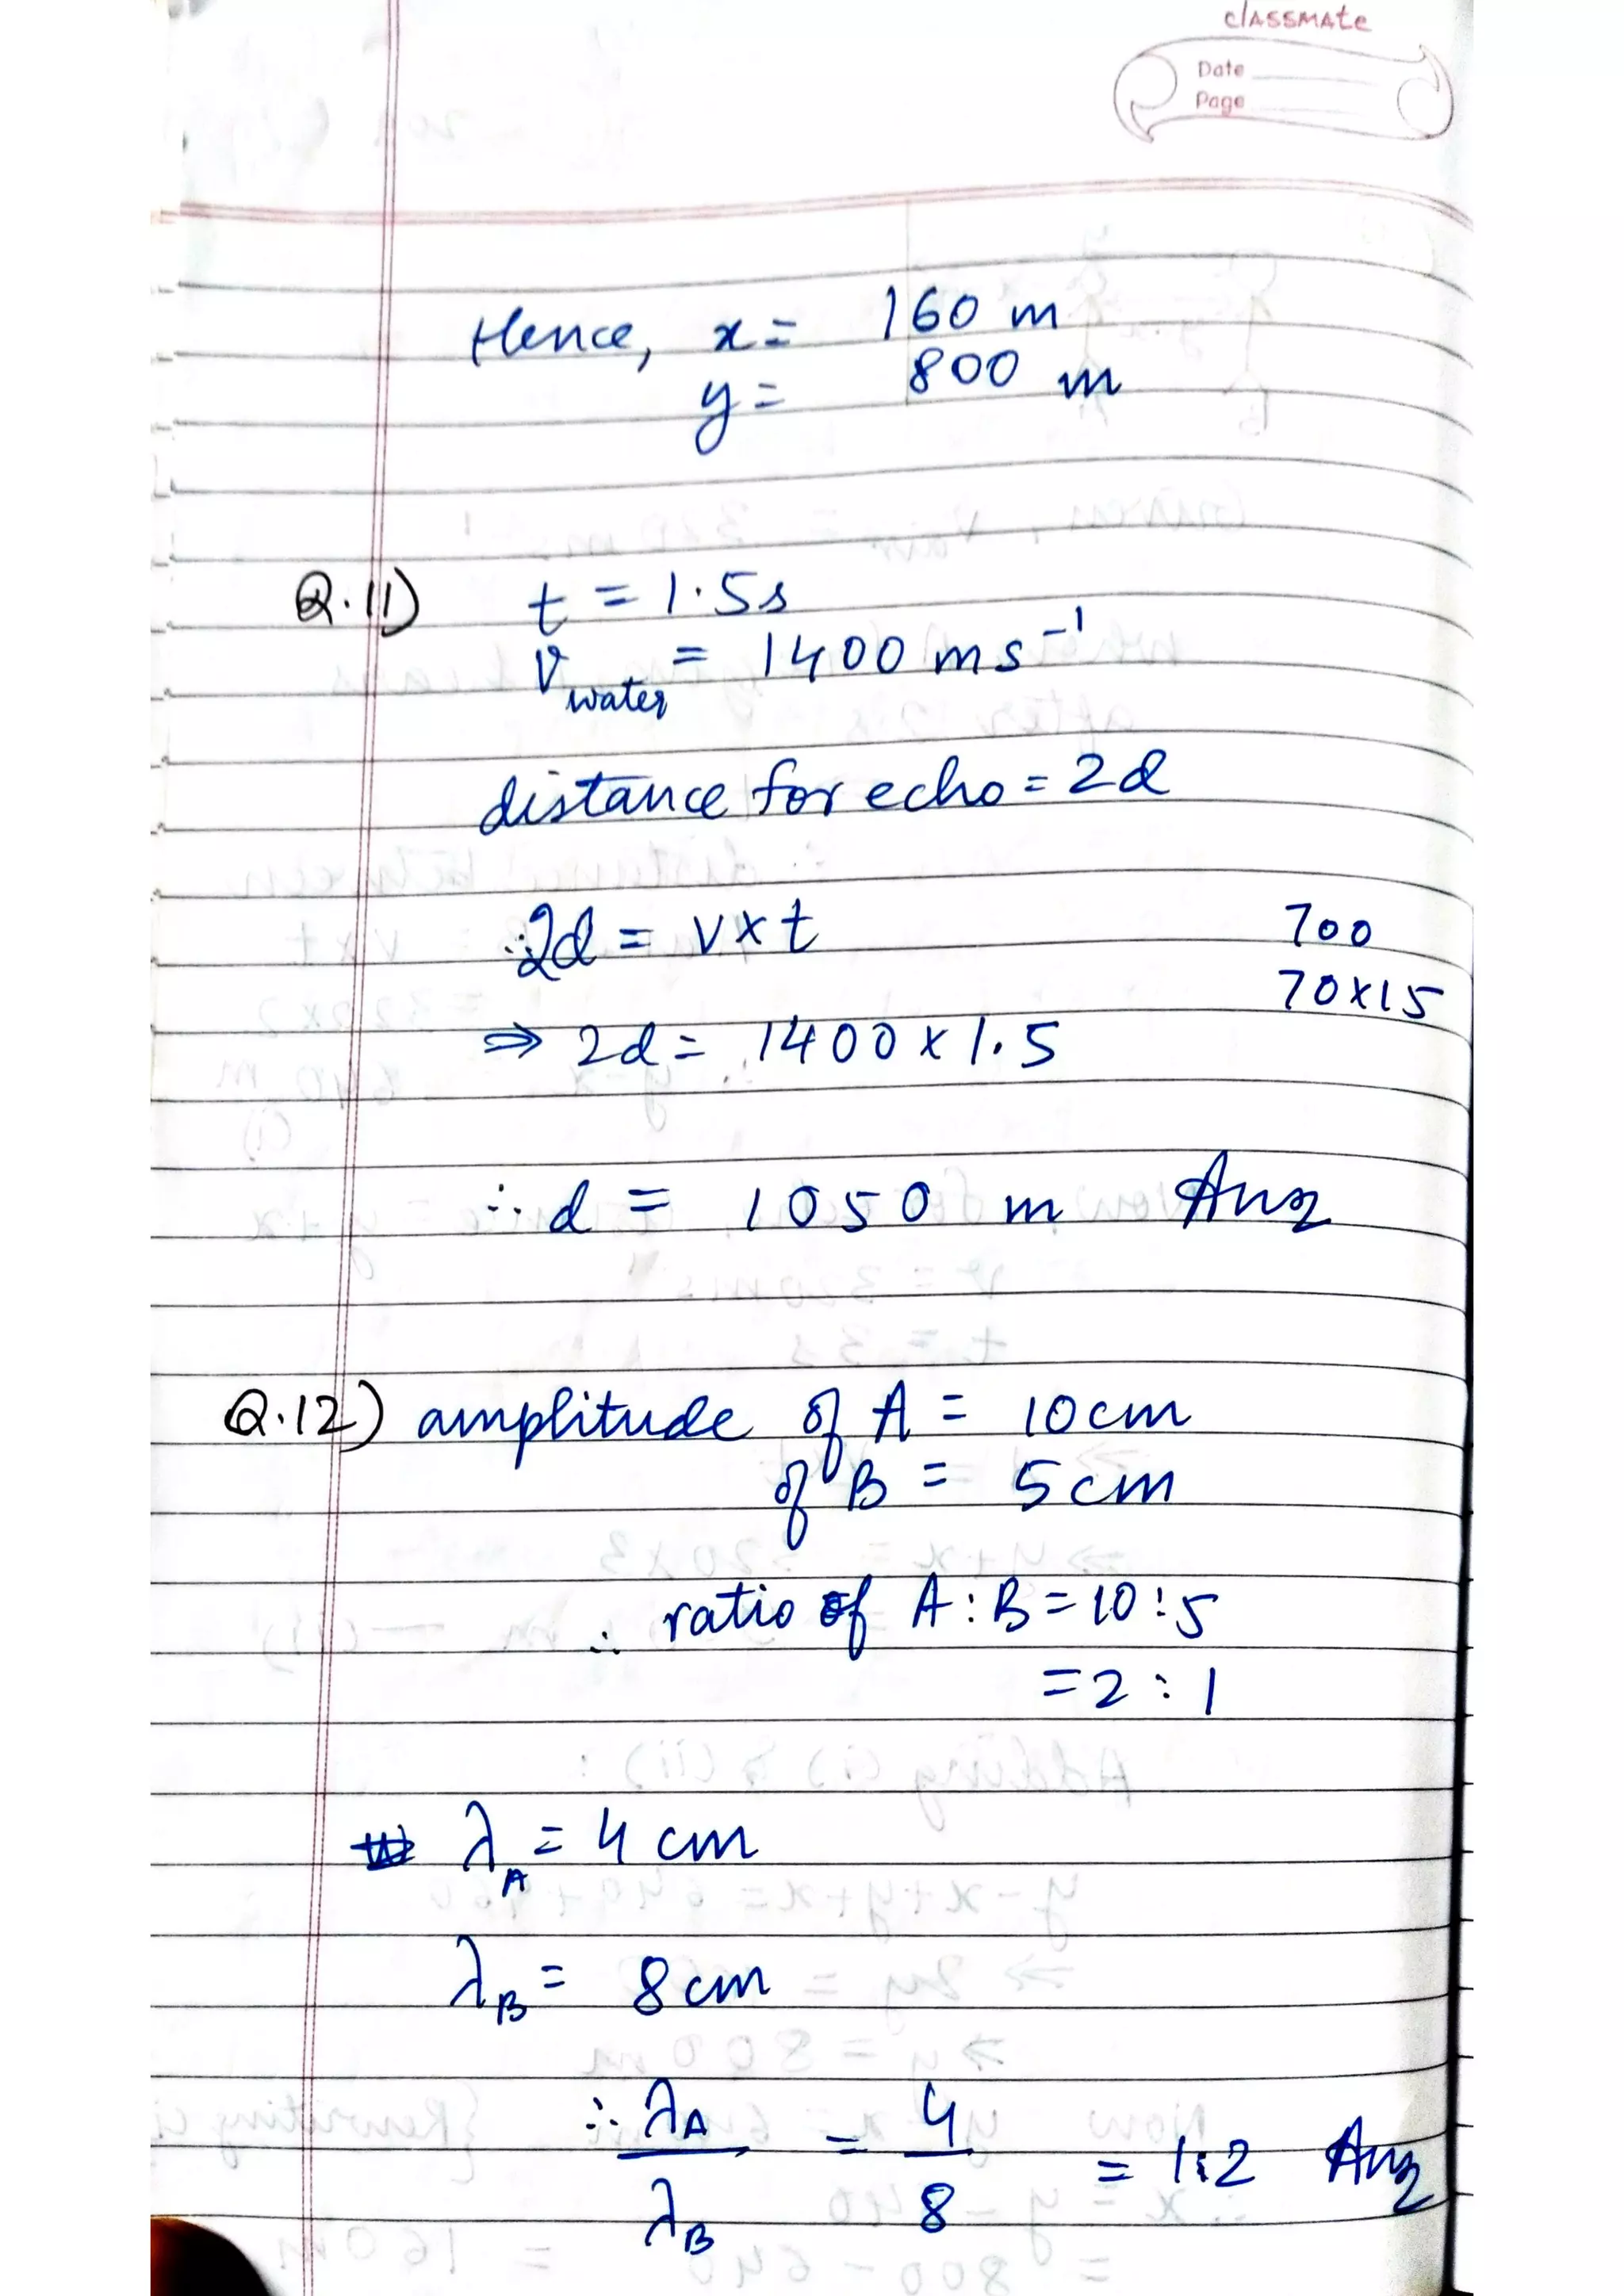 classmate
Date
Page
Hence, x = 160 m
y = 800 m
Q.11) t = 1.5s
V water = 1400 ms⁻¹
distance for echo = 2d
∴ 2d = v×t
700
70×15
⇒ 2d = 1400 × 1.5
∴ d = 1050 m Ans
Q.12) amplitude of A = 10cm
of B = 5cm
∴ ratio of A : B = 10 : 5
= 2 : 1
λA = 4 cm
λB = 8 cm
∴ λA/λB = 4/8 = 1:2 Ans